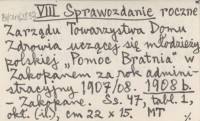 VIII Sprawozdanie roczne
Zarządu Towarzystwa Domu
Zdrowia uczącej się młodzieży
polskiej „Pomoc Bratnia" w
Zakopanem za rok admini-
stracyjny 1907/08. 1908 b.
- Zakopane. Ss. 47, tabl. 1,
okł. (il.), cm 22 x 15. MT